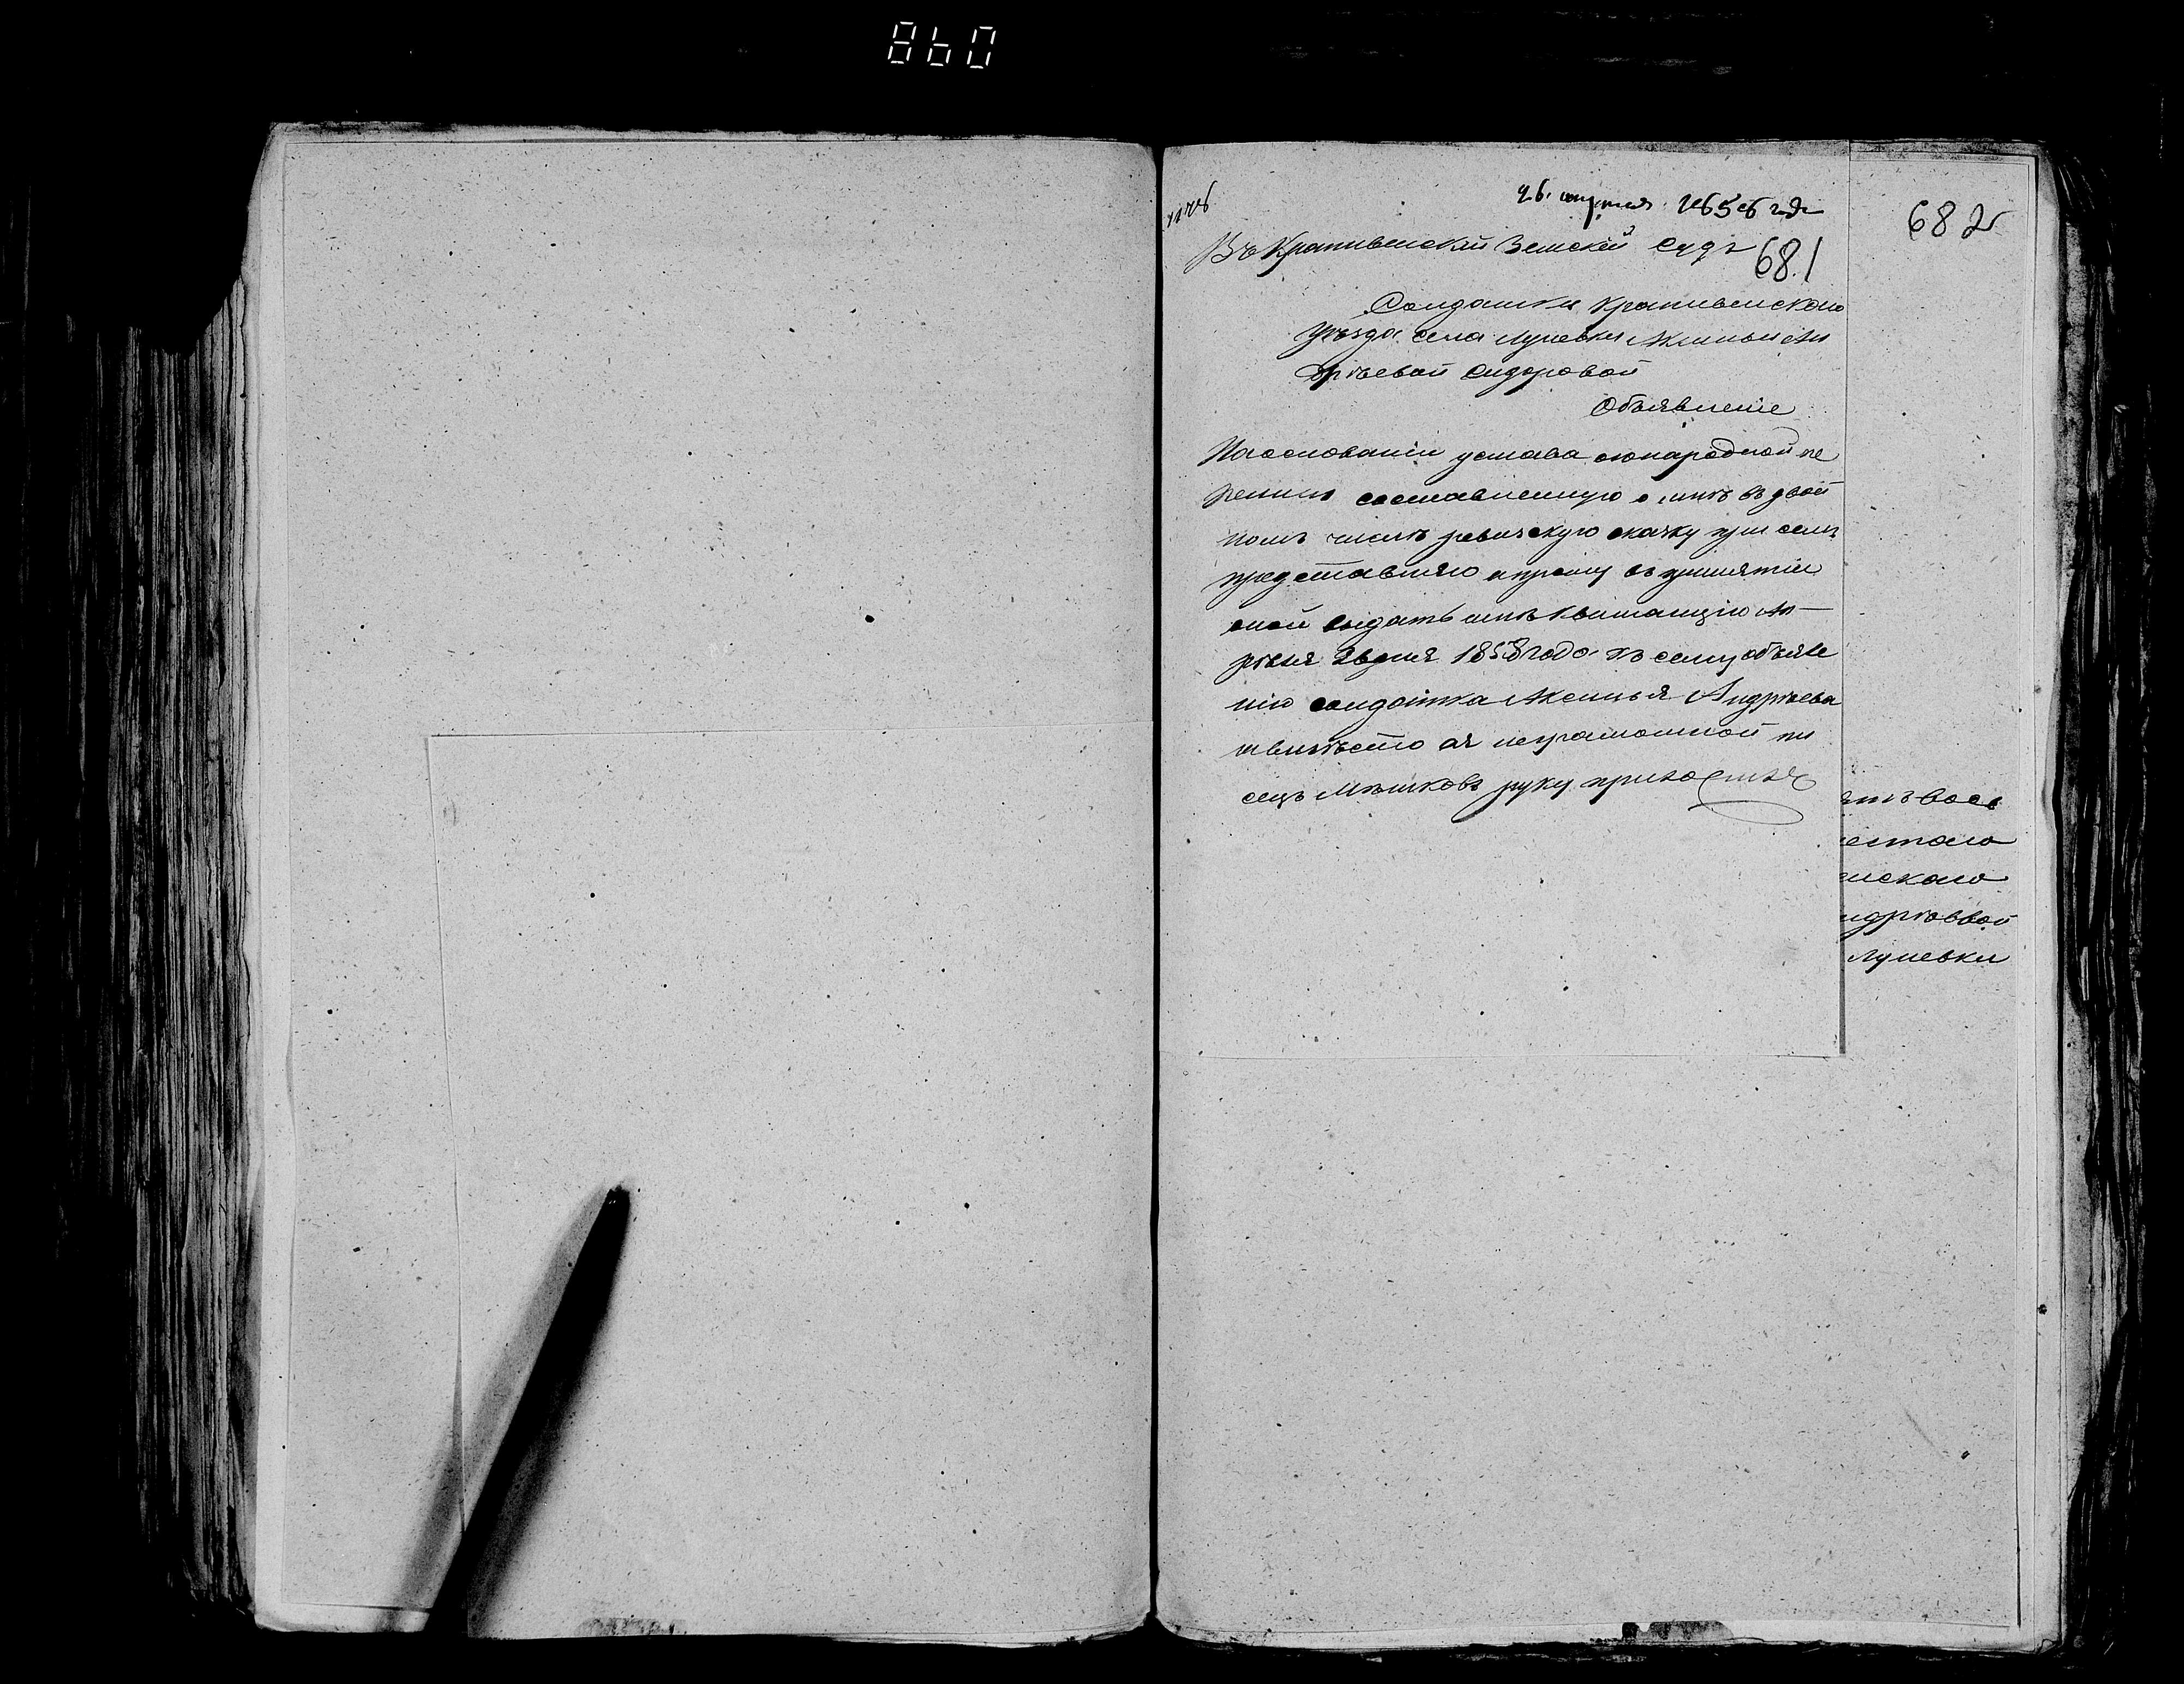 860
26. апреля 1858 года
682
Въ Крапивенскій Земскій Судъ
681
Солдатки Крапивенскаго
Уѣзда села Луневки Аксиньи Ан
дрѣевой Сидоровой
Объявленіе
На основаніи устава онародной пе
реписи составленную о мнѣ въ двой
номъ числѣ ревизскую сказку при семъ
представляю и прошу въ принятіи
оной выдать мнѣ квитанцію Ап
рѣля дня 1858 года къ сему объявле
нію солдатка Аксинья Андрѣева
а вмѣсто ея неграмотной пи
сецъ Мѣшковъ руку приложилъ
восе
естаго
нскаго
ндрѣевой
Луневки